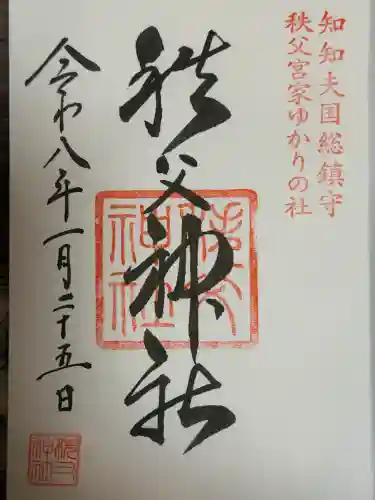 知知夫国総鎮守
秩父宮家ゆかりの社
秩父神社
秩父
神社
令和八年一月二十五日
秩父
神社